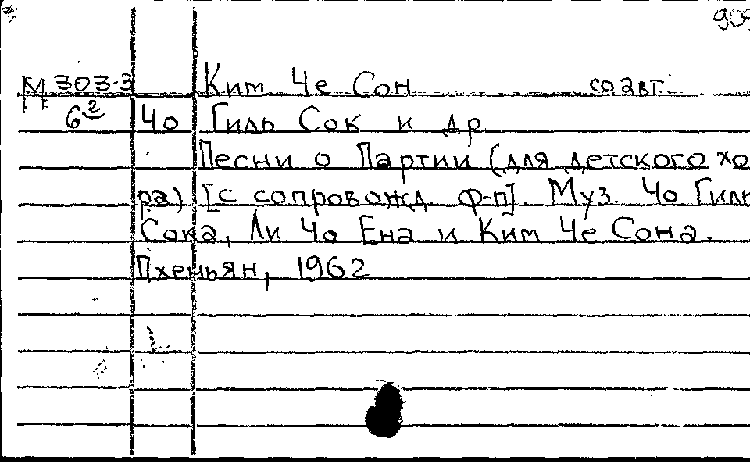 905
М 303-3 Ким Че Сон соавт.
6² Чо Гиль Сок и др
Песни о Партии (для детского хо
ра) [с сопровожд. ф-п]. Муз Чо Гиль
Сока, Ли Чо Ена и Ким Че Сона.
Пхеньян, 1962